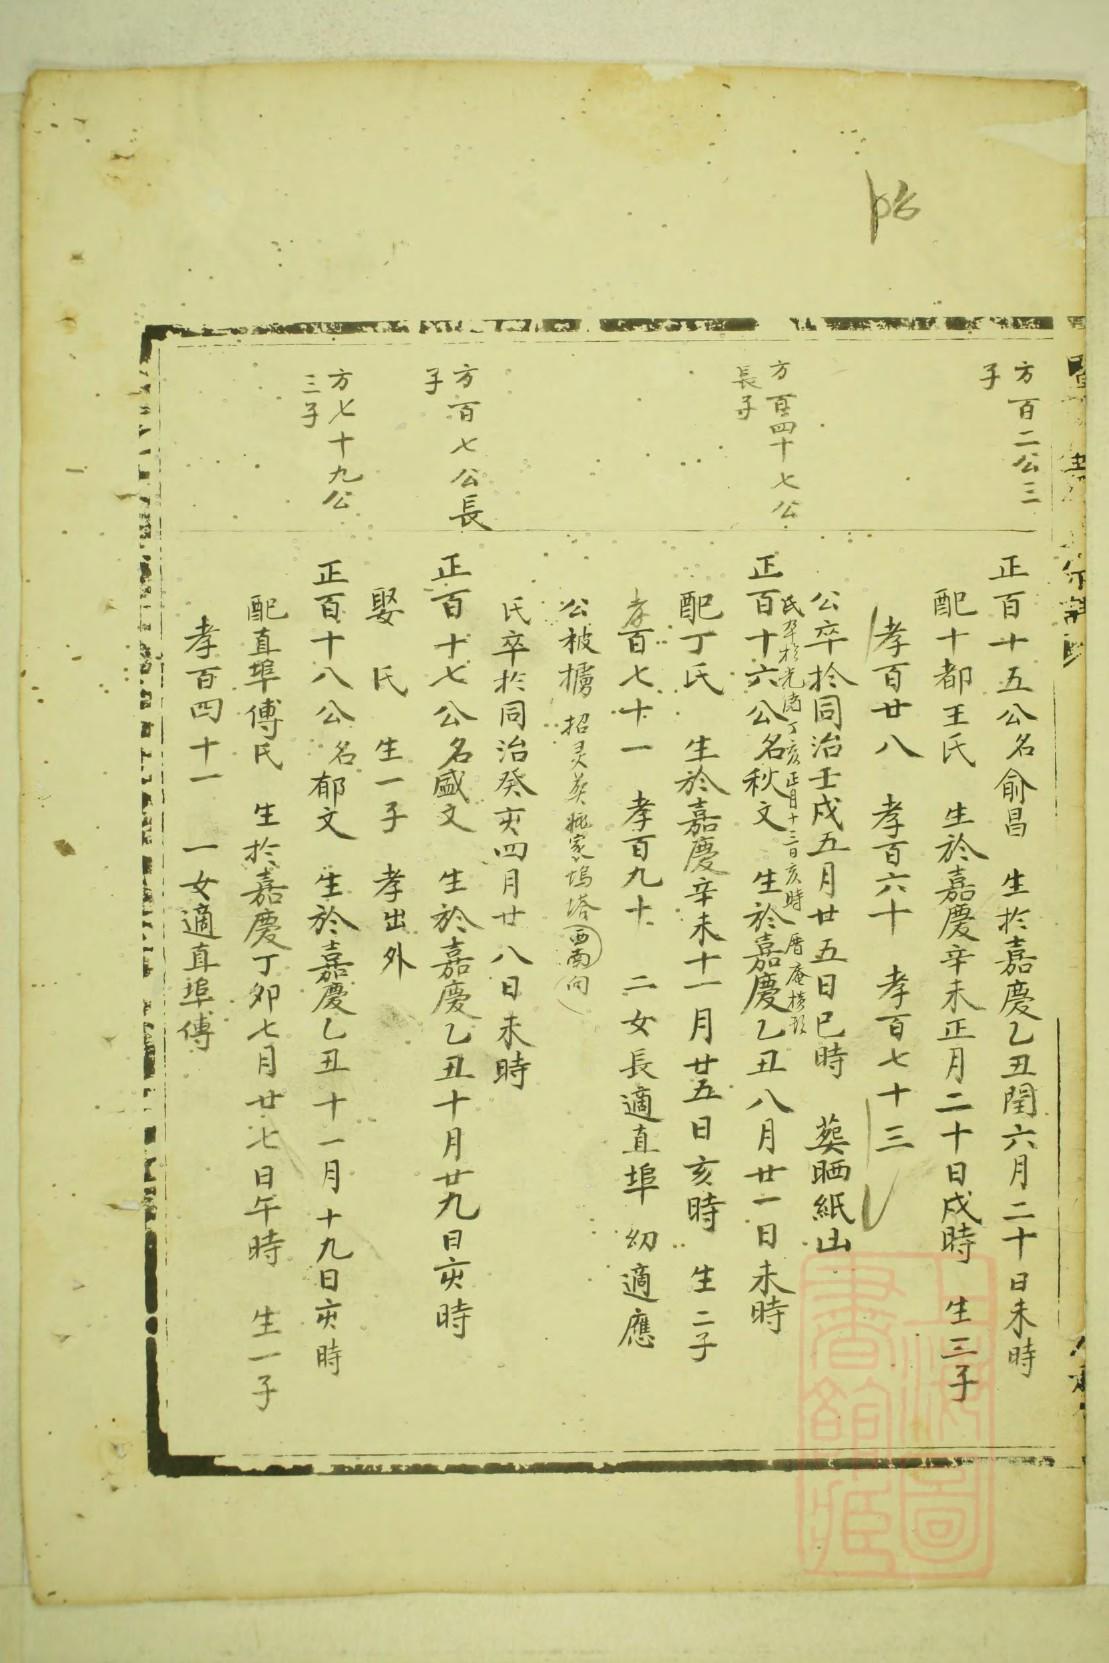 方百二公三
子
正百十五公名俞昌 生於嘉慶乙丑閏六月二十日未時
配十都王氏 生於嘉慶辛未正月二十日戌時 生三子
孝百廿八 孝百六十 孝百七十三
公卒於同治壬戌五月廿五日巳時 葬晒紙山
氏卒於光緒丁亥正月十三日亥時
方百四十七公
長子
正百十六公名秋文 生於嘉慶乙丑八月廿一日未時
配丁氏 生於嘉慶辛未十一月廿五日亥時 生二子
孝百七十一 孝百九十 二女長適直埠 幼適應
公被擄 招灵葬 家塢塔 西南向
氏卒於同治癸亥四月廿八日未時
方百七公長
子
正百十七公名盛文 生於嘉慶乙丑十月廿九日亥時
娶 氏 生一子 孝出外
方七十九公
三子
正百十八公名郁文 生於嘉慶乙丑十一月十九日亥時
配直埠傅氏 生於嘉慶丁卯七月廿七日午時 生一子
孝百四十一 一女適直埠傅
上海圖
書館藏